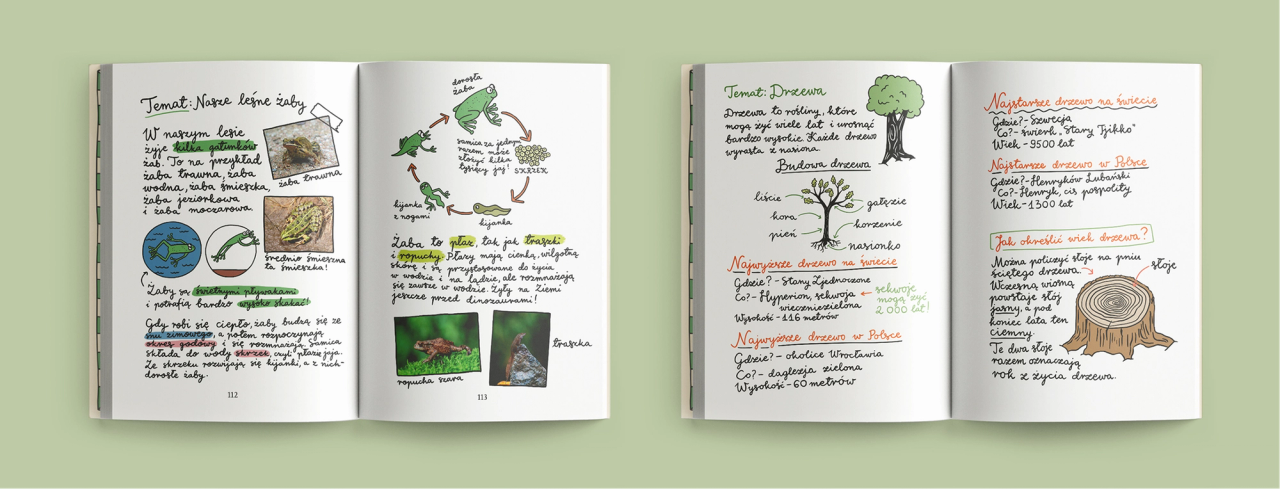 Temat: Nasze leśne żaby
W naszym lesie
żyje kilka gatunków
żab. To na przykład
żaba trawna, żaba
wodna, żaba śmieszka,
żaba jeziorkowa
i żaba moczarowa.
żaba trawna
średnio śmieszna
ta śmieszka!
Żaby są świetnymi pływakami
i potrafią bardzo wysoko skakać!
Gdy robi się ciepło, żaby budzą się ze
snu zimowego, a potem rozpoczynają
okres godowy i się rozmnażają. Samica
składa do wody skrzek, czyli płazie jaja.
Ze skrzeku rozwijają się kijanki, a z nich-
dorosłe żaby.
112
dorosła
żaba
samica za jednym
razem może
złożyć kilka
tysięcy jaj!
SKRZEK
kijanka
z nogami
kijanka
Żaba to płaz, tak jak traszki
i ropuchy. Płazy mają cienką, wilgotną
skórę i są przystosowane do życia
w wodzie i na lądzie, ale rozmnażają
się zawsze w wodzie. Żyły na Ziemi
jeszcze przed dinozaurami!
traszka
ropucha szara
113
Temat: Drzewa
Drzewa to rośliny, które
mogą żyć wiele lat i urosnąć
bardzo wysokie. Każde drzewo
wyrasta z nasiona.
Budowa drzewa
liście
kora
pień
gałęzie
korzenie
nasionko
Najwyższe drzewo na świecie
Gdzie? - Stany Zjednoczone
Co? - Hyperion, sekwoja
wieczniezielona
Wysokość - 116 metrów
sekwoje
mogą żyć
2 000 lat!
Najwyższe drzewo w Polsce
Gdzie? - okolice Wrocławia
Co? - daglezja zielona
Wysokość - 60 metrów
Najstarsze drzewo na świecie
Gdzie? - Szwecja
Co? - świerk „Stary Tjikko"
Wiek - 9500 lat
Najstarsze drzewo w Polsce
Gdzie? - Henryków Lubański
Co? - Henryk, cis pospolity
Wiek - 1300 lat
Jak określić wiek drzewa?
Można policzyć słoje na pniu
ściętego drzewa.
Wczesną wiosną
powstaje słój
jasny, a pod
koniec lata ten
ciemny.
Te dwa słoje
razem oznaczają
rok z życia drzewa.
słoje